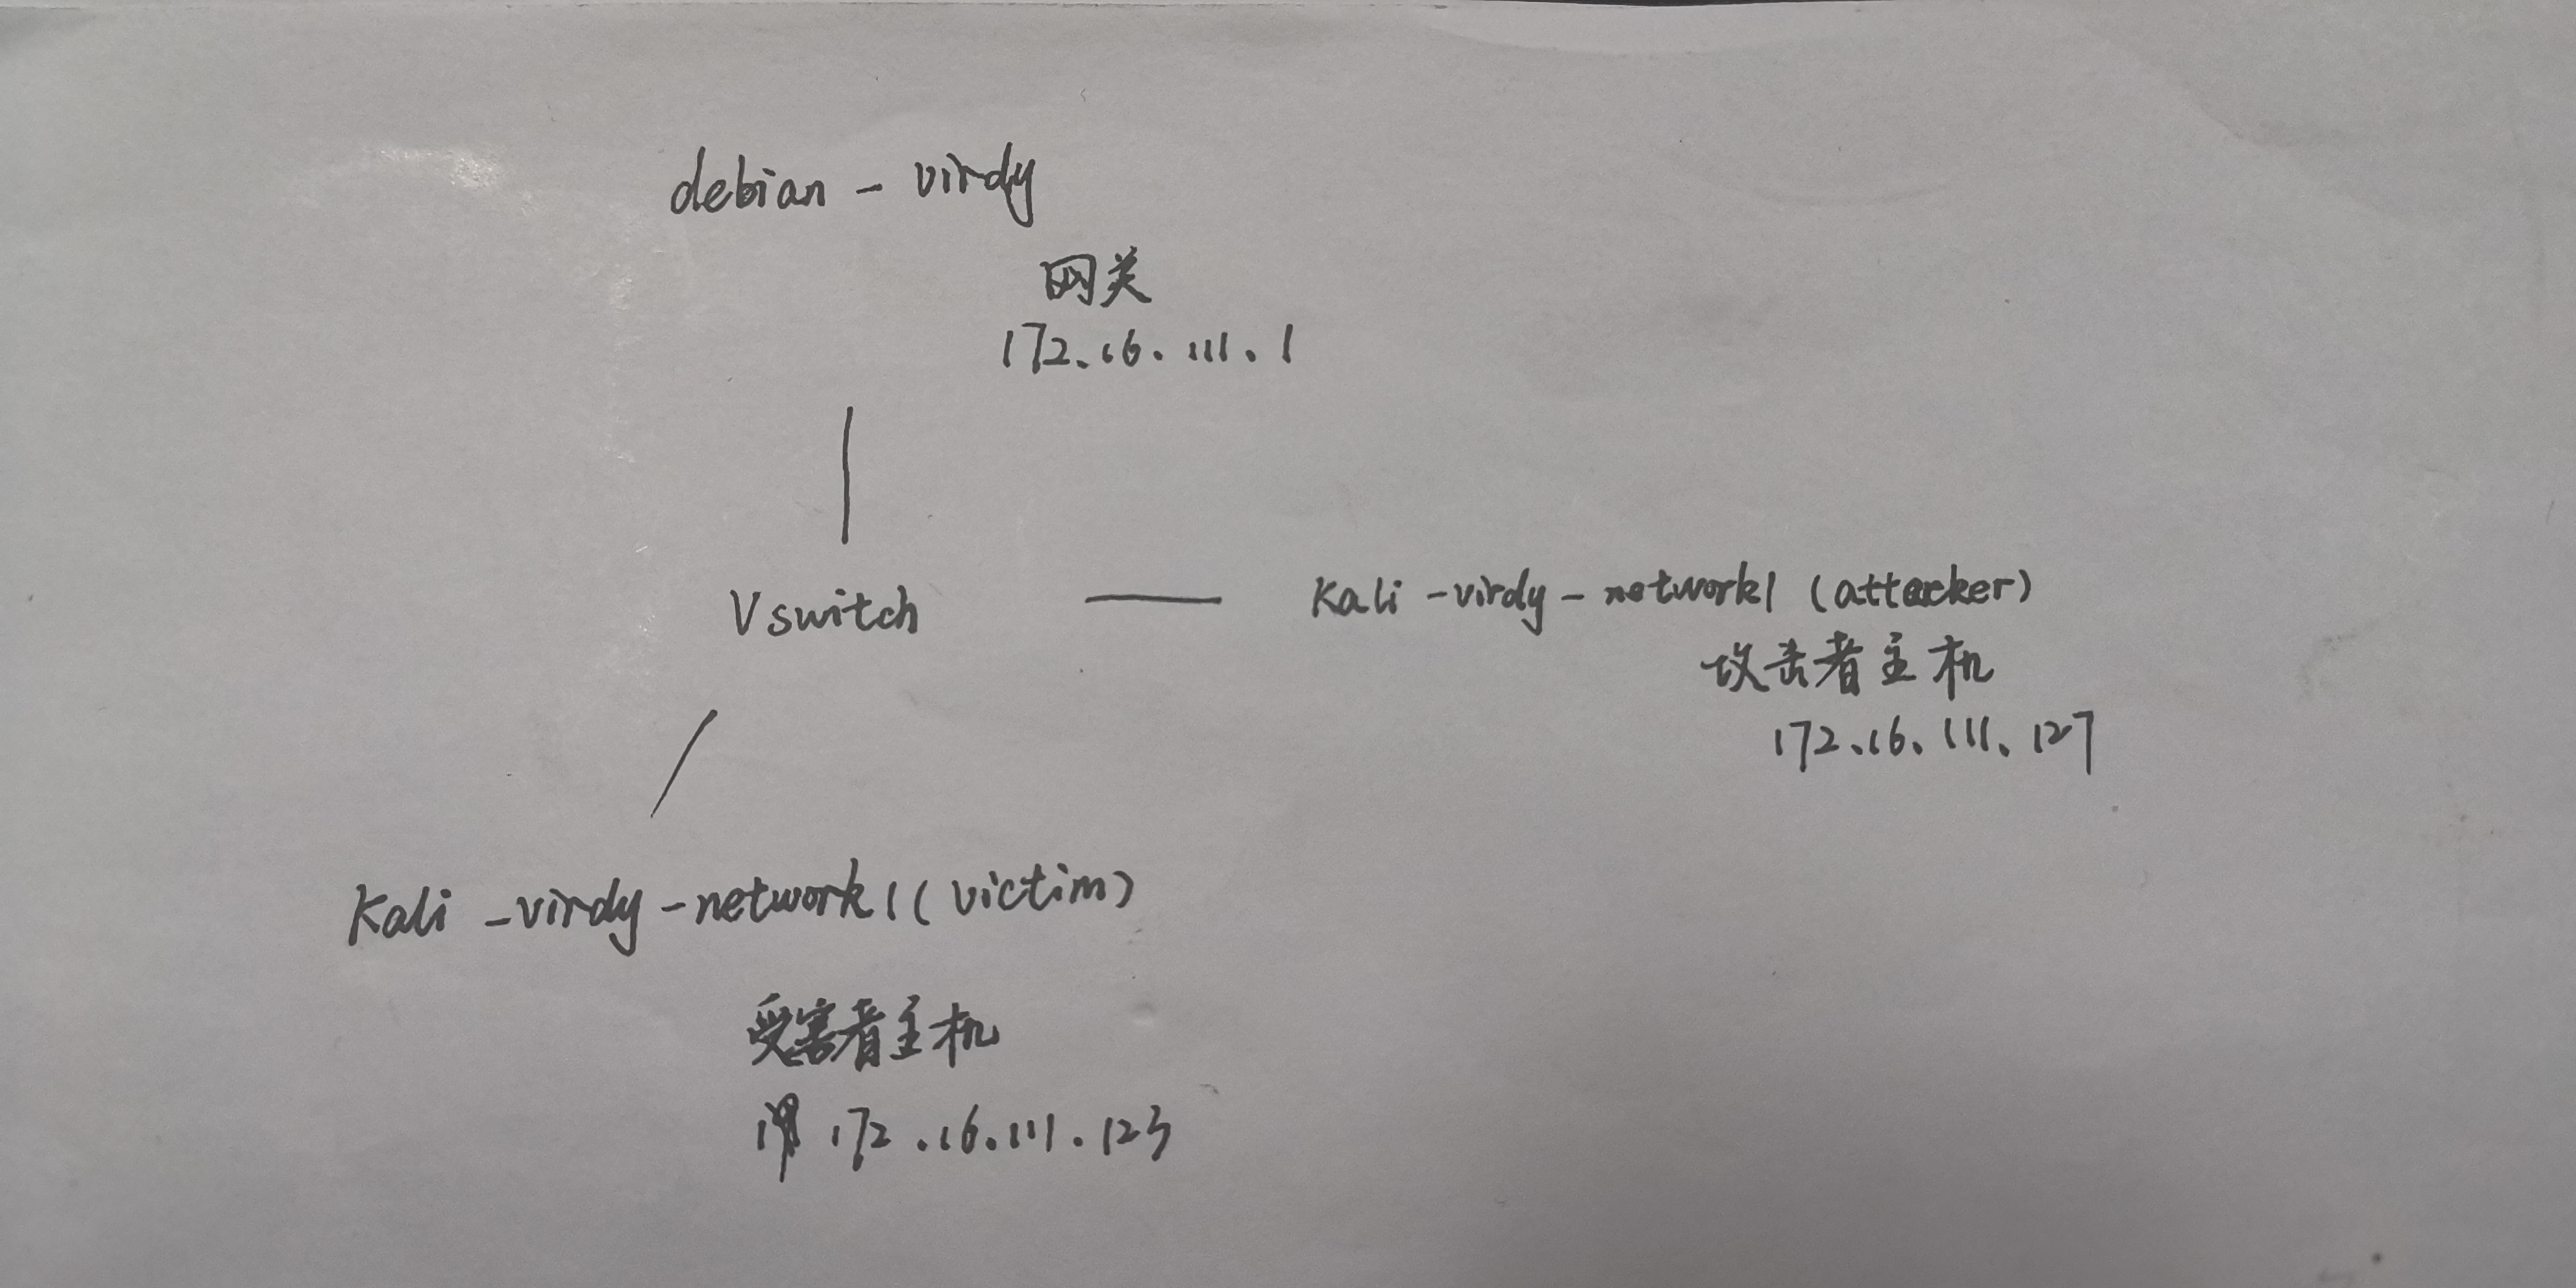 debian - virdy
网关
172.16.111.1
Vswitch
Kali - virdy - network1 (attacker)
攻击者主机
172.16.111.127
Kali - virdy - network1 (victim)
受害者主机
172.16.111.123